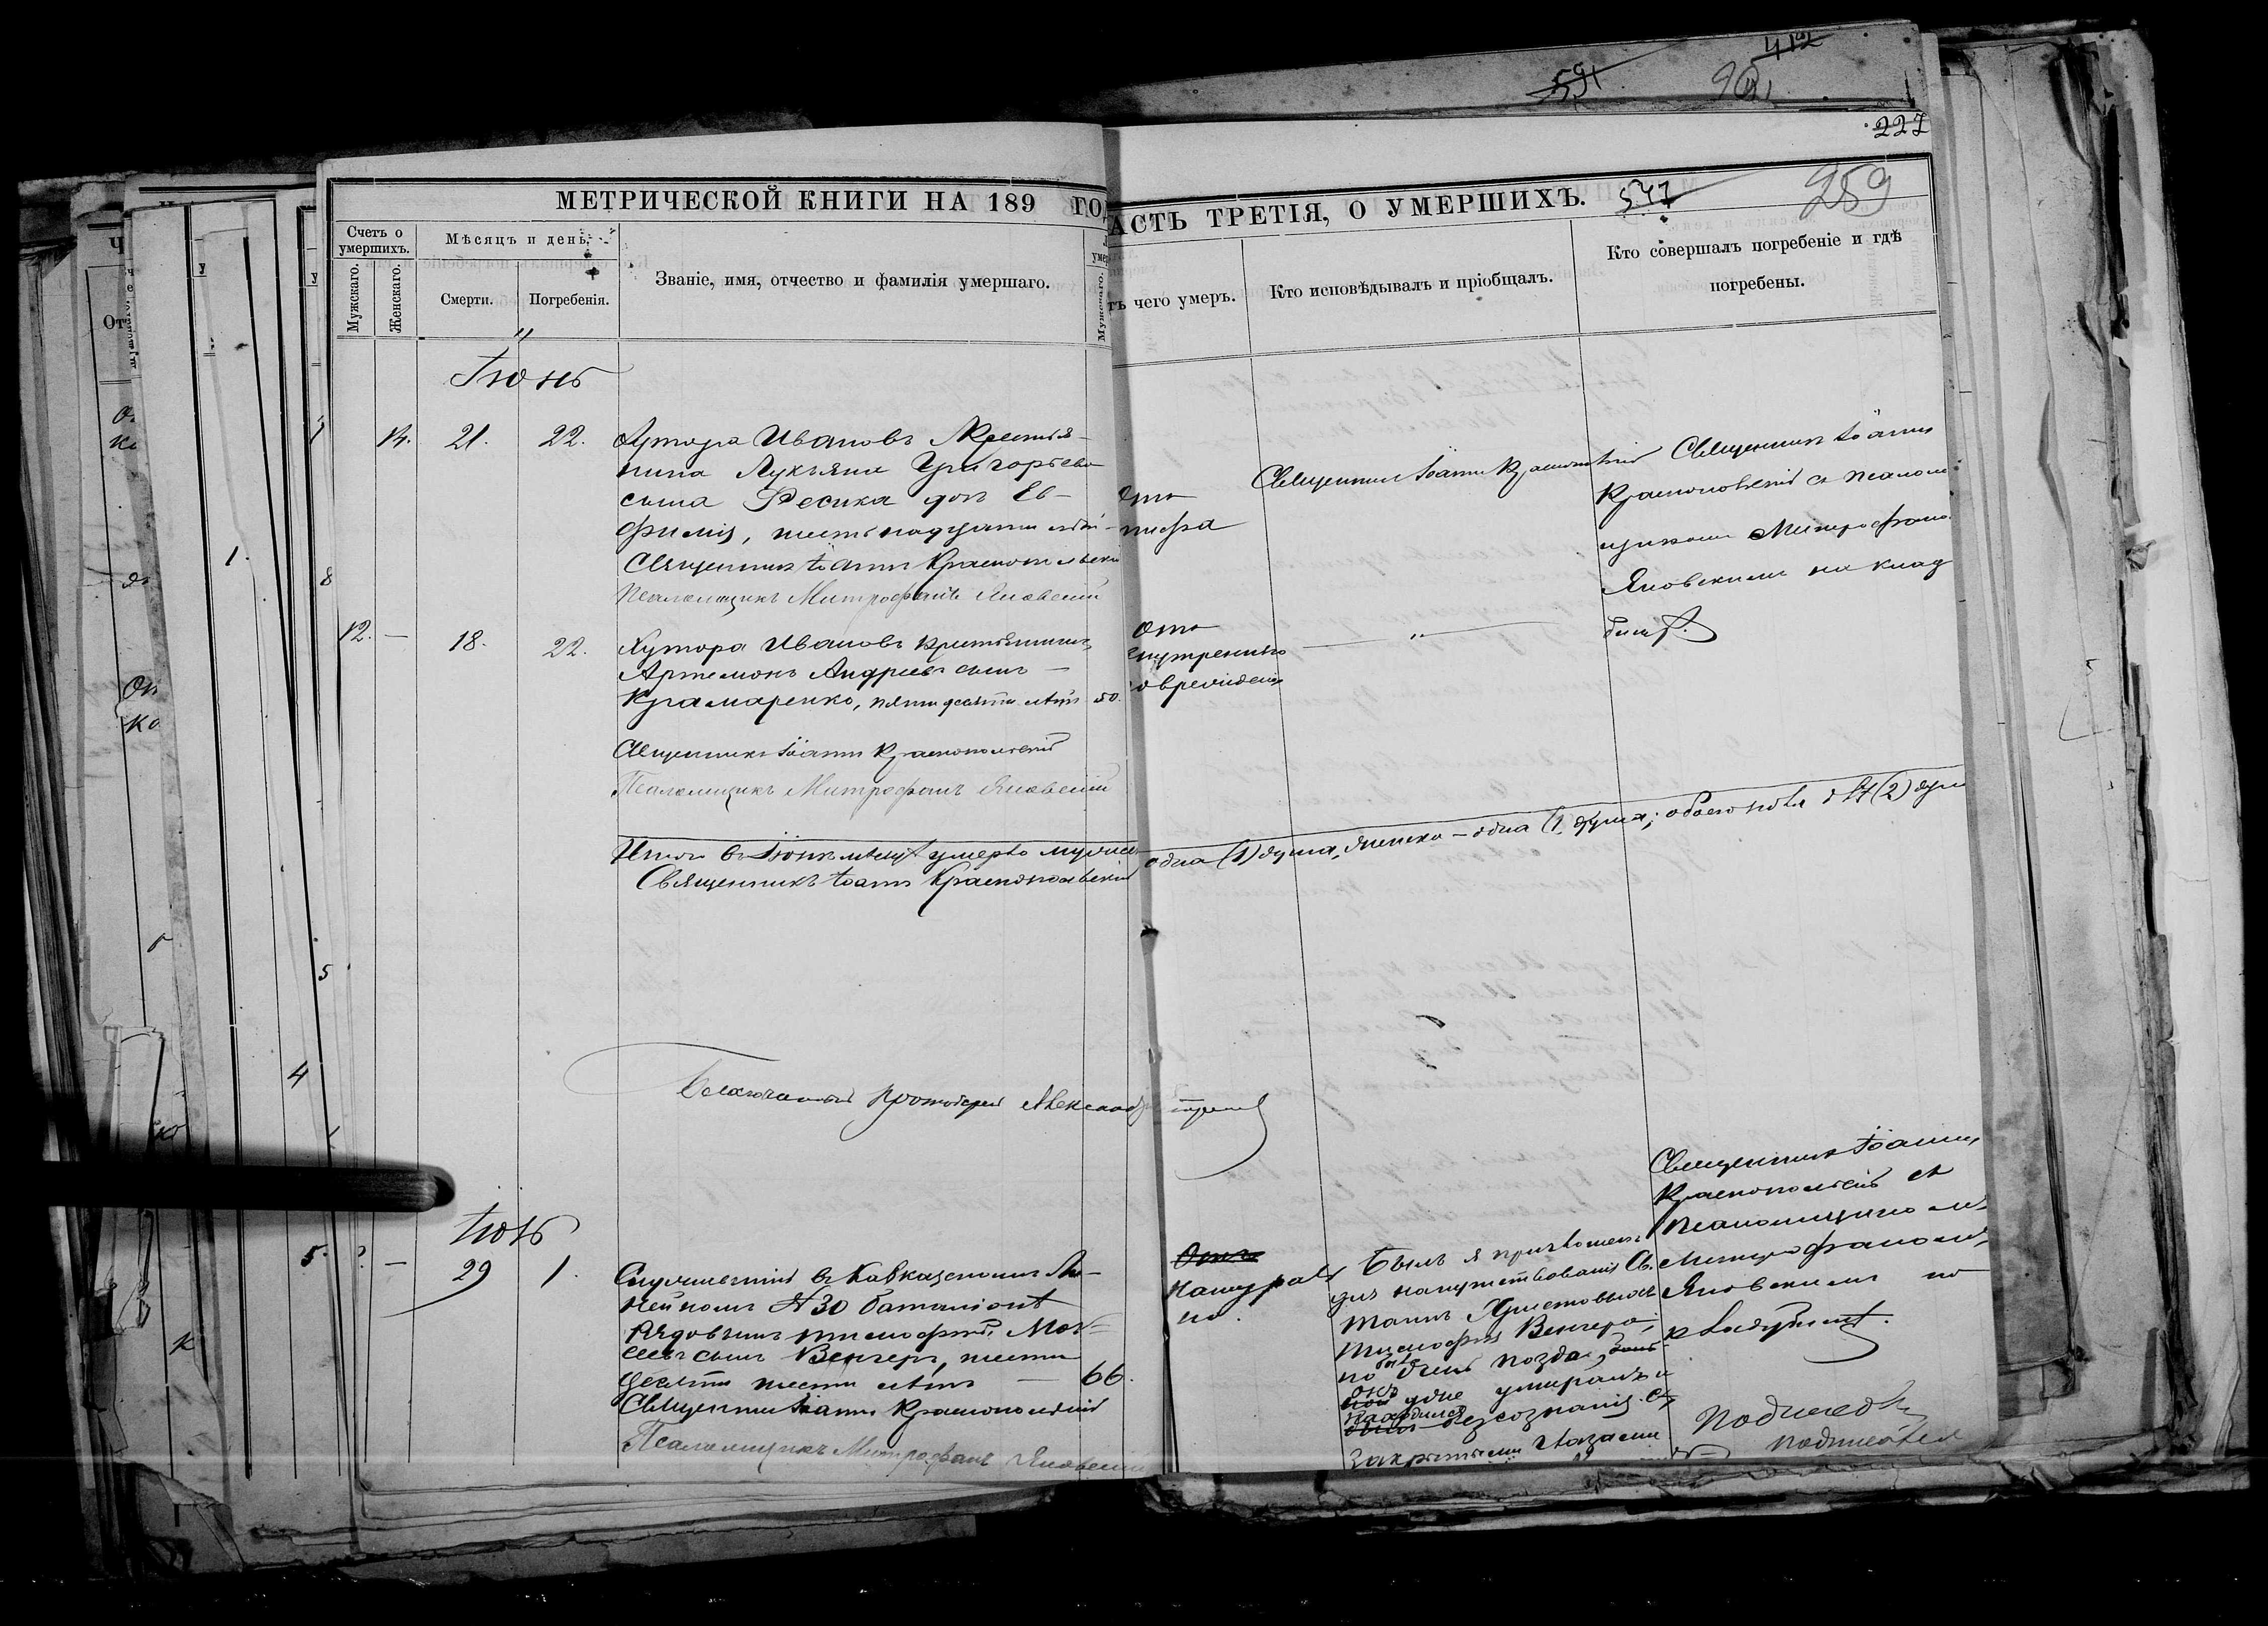 412
591
227
МЕТРИЧЕСКОЙ КНИГИ НА 189 ГО
АСТЬ ТРЕТІЯ, О УМЕРШИХЪ.
541
259
Счетъ о умершихъ.
Мужскаго.
Женскаго.
Мѣсяцъ и день.
Смерти.
Погребенія.
Званіе, имя, отчество и фамилія умершаго.
Мужскаго.
тъ чего умеръ.
Кто исповѣдывалъ и пріобщалъ.
Кто совершалъ погребеніе и гдѣ
погребены.
Іюнь
21. 22.
Хутора Ивановъ Крестья-
нина Лукъяна Григорьева
сына Фесика дочь Ев-
фимія, шестьнадцати лѣтъ
Священникъ Іоаннъ Краснопольскій
Псаломщикъ Митрофанъ Яновскій
Отъ
тифа
Священникъ Іоаннъ Краснопольскій
Священникъ Іоаннъ
Краснопольскій съ псалом
щикомъ Митрофано
Яновскимъ на клад
бищѣ.
12. — 18. 22.
Хутора Ивановъ крестьянинъ
Артемонъ Андреевъ сынъ —
Крамаренко, пятидесяти лѣтъ 50.
Священникъ Іоаннъ Краснопольскій
Псаломщикъ Митрофанъ Яновскій
Отъ
внутренняго
поврежденія
— „ —
Итого въ Іюнѣ мѣсяцѣ умерло мужск одна (1) душа, женска — одна (1) душа; обоего пола двѣ (2) души
Священникъ Іоаннъ Краснопольскій
Протоіерей Александръ
Іюль
— 29 1.
Служившій въ Кавказскомъ Ли-
нейномъ № 30 баталіонѣ
Рядовымъ Тимофей Мои-
сеевъ сынъ Венгеръ, шести
десяти шести лѣтъ — 66.
Священникъ Іоаннъ Краснопольскій
Псаломщикъ Митрофанъ Яновскій
Отъ
натураль
но.
Былъ я приглашенъ
для напутствованія Св.
Таинъ Христовыхъ
Тимофея Венгера,
но было очень поздно,
онъ уже умиралъ и
находился
безъ сознанія съ
закрытыми глазами
Священникъ Іоаннъ
Краснопольскій съ
псаломщикомъ
Митрофаномъ
Яновскимъ на
кладбищѣ.